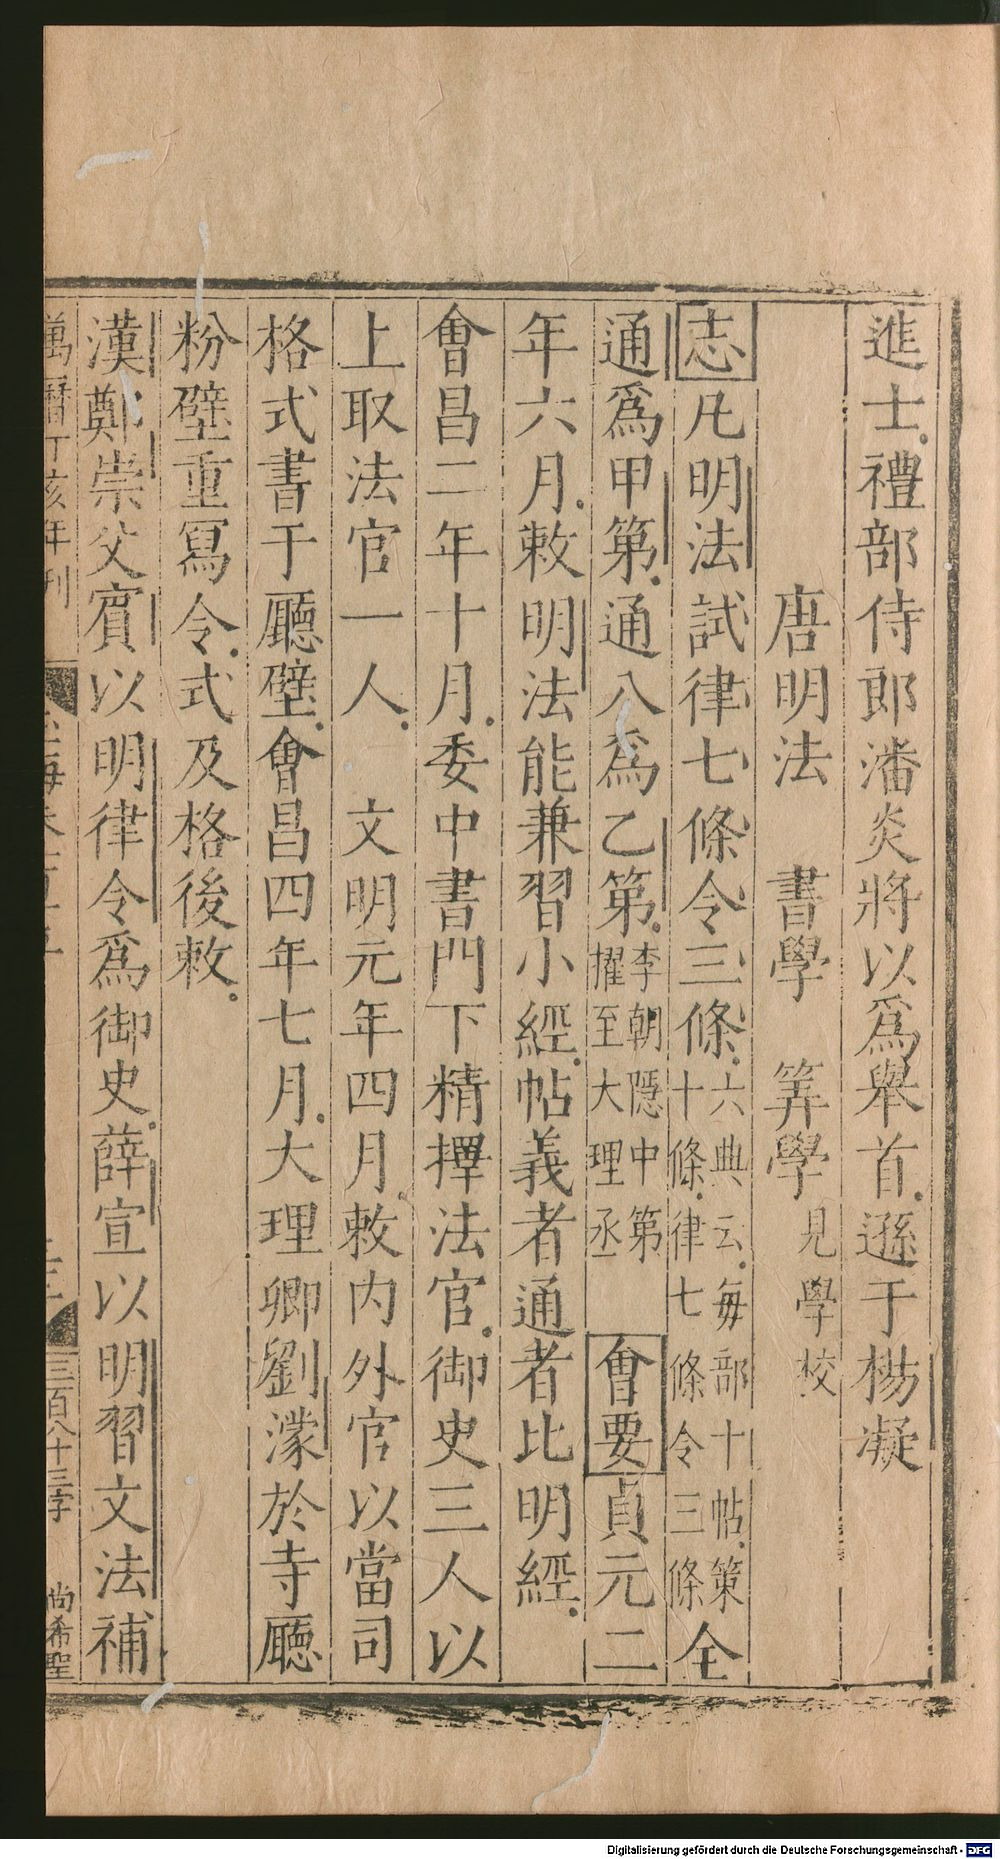 進士禮部侍郎潘炎將以爲舉首遜于楊凝
唐明法　書學　筭學見學校
志凡明法試律七條令三條六典云每部十帖策十條律七條令三條全
通爲甲第通八爲乙第李朝隱中第擢至大理丞　會要貞元二
年六月敕明法能兼習小經帖義者通者比明經
會昌二年十月委中書門下精擇法官御史三人以
上取法官一人　文明元年四月敕內外官以當司
格式書于廳壁會昌四年七月大理卿劉濛於寺廳
粉壁重寫令式及格後敕
漢鄭崇父賓以明律令爲御史薛宣以明習文法補
萬曆丁亥年刊　三百八十三字　尚希聖
Digitalisierung gefördert durch die Deutsche Forschungsgemeinschaft - DFG